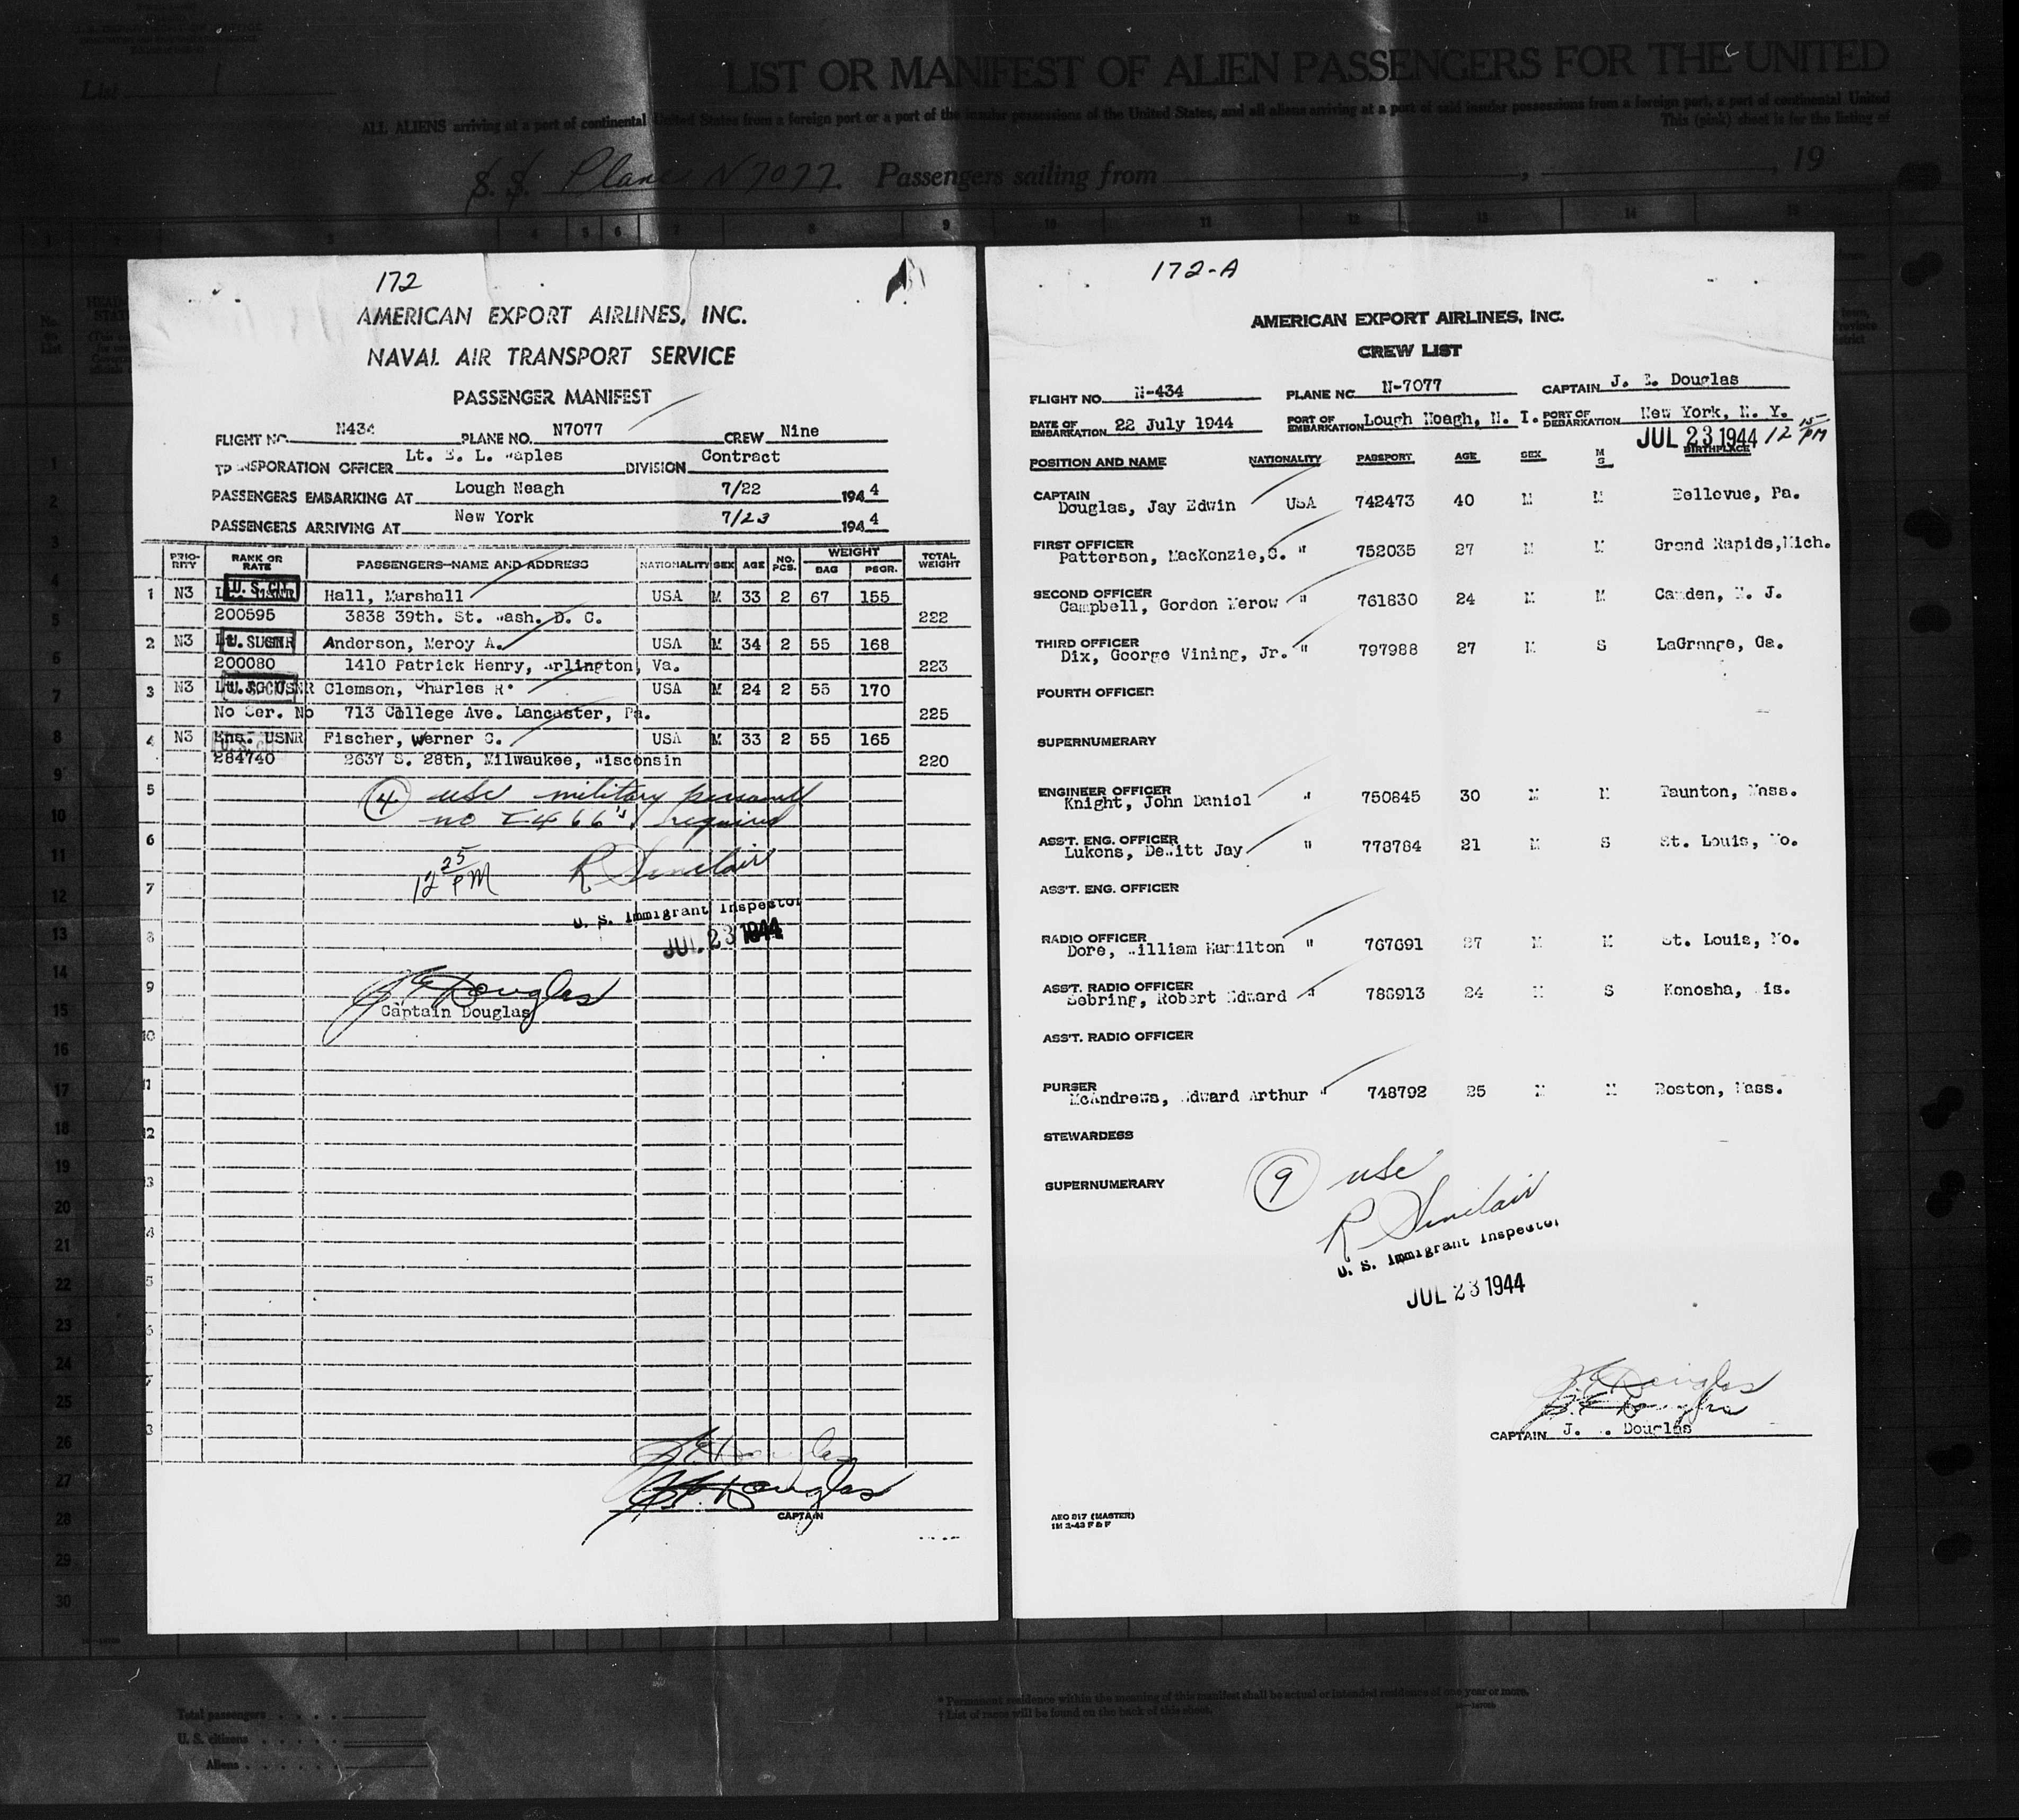 List 1
LIST OR MANIFEST OF ALIEN PASSENGERS FOR THE UNITED
ALL ALIENS arriving at a port of continental United States from a foreign port or a port of the insular possessions of the United States, and all aliens arriving at a port of said insular possessions from a foreign port, a port of continental United
This (pink) sheet is for the listing of
S. S. Plane N7077. Passengers sailing from , , 19
172
AMERICAN EXPORT AIRLINES, INC.
NAVAL AIR TRANSPORT SERVICE
PASSENGER MANIFEST
FLIGHT NO. N434 PLANE NO. N7077 CREW Nine
OFFICER Lt. E. L. DIVISION Contract
PASSENGERS EMBARKING AT Lough Neagh 7/22 1944
PASSENGERS ARRIVING AT New York 7/23 1944
PRIORITY RANK OR RATE PASSENGERS—NAME AND ADDRESS NATIONALITY SEX AGE NO. PCS. WEIGHT BAG PSGR. TOTAL WEIGHT
1 N3 U. S. Cit. USNR Hall, Marshall USA M 33 2 67 155
200595 3838 39th. St. Wash. D. C. 222
2 N3 Anderson, Meroy A. USA M 34 2 55 168
200080 1410 Patrick Henry, Arlington, Va. 223
3 N3 USNR Clemson, Charles R. USA M 24 2 55 170
No Ser. No 713 College Ave. Lancaster, Pa. 225
4 N3 Ens. USNR Fischer, Werner C. USA M 33 2 55 165
284740 2637 S. 28th, Milwaukee, Wisconsin 220
5
6
7
8
9
10
11
12
④ usc military personnel
no I466's required
12 25 PM R Sinclair
U. S. Immigrant Inspector
JUL 23 1944
J E Douglas
Captain Douglas
J E Douglas
J. E. Douglas
CAPTAIN
172-A
AMERICAN EXPORT AIRLINES, INC.
CREW LIST
FLIGHT NO. N-434 PLANE NO. N-7077 CAPTAIN J. E. Douglas
DATE OF EMBARKATION 22 July 1944 PORT OF EMBARKATION Lough Noagh, N. I. PORT OF DEBARKATION New York, N. Y.
JUL 23 1944 12 15 PM
POSITION AND NAME NATIONALITY PASSPORT AGE SEX M S BIRTHPLACE
CAPTAIN
Douglas, Jay Edwin USA 742473 40 M M Bellevue, Pa.
FIRST OFFICER
Patterson, MacKenzie, S. " 752035 27 M M Grand Rapids, Mich.
SECOND OFFICER
Campbell, Gordon Merow " 761830 24 M M Camden, N. J.
THIRD OFFICER
Dix, George Vining, Jr. " 797988 27 M S LaGrange, Ga.
FOURTH OFFICER
SUPERNUMERARY
ENGINEER OFFICER
Knight, John Daniel " 750845 30 M M Taunton, Mass.
ASS'T. ENG. OFFICER
Lukens, DeWitt Jay " 778784 21 M S St. Louis, Mo.
ASS'T. ENG. OFFICER
RADIO OFFICER
Dore, William Hamilton " 767691 27 M M St. Louis, Mo.
ASS'T. RADIO OFFICER
Sebring, Robert Edward " 786913 24 M S Kenosha, Wis.
ASS'T. RADIO OFFICER
PURSER
McAndrews, Edward Arthur " 748792 25 M M Boston, Mass.
STEWARDESS
SUPERNUMERARY
⑨ usc
R Sinclair
U. S. Immigrant Inspector
JUL 23 1944
J E Douglas
J. E. Douglas
CAPTAIN J. E. Douglas
AEO 817 (MASTER)
1M 3-43 F & F
* Permanent residence within the meaning of this manifest shall be actual or intended residence of one year or more.
† List of races will be found on the back of this sheet.
Total passengers
U. S. citizens
Aliens